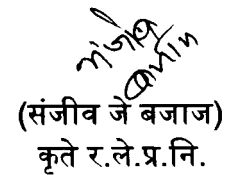 (संजीव जे बजाज)
कृते र.ले.प्र.नि.